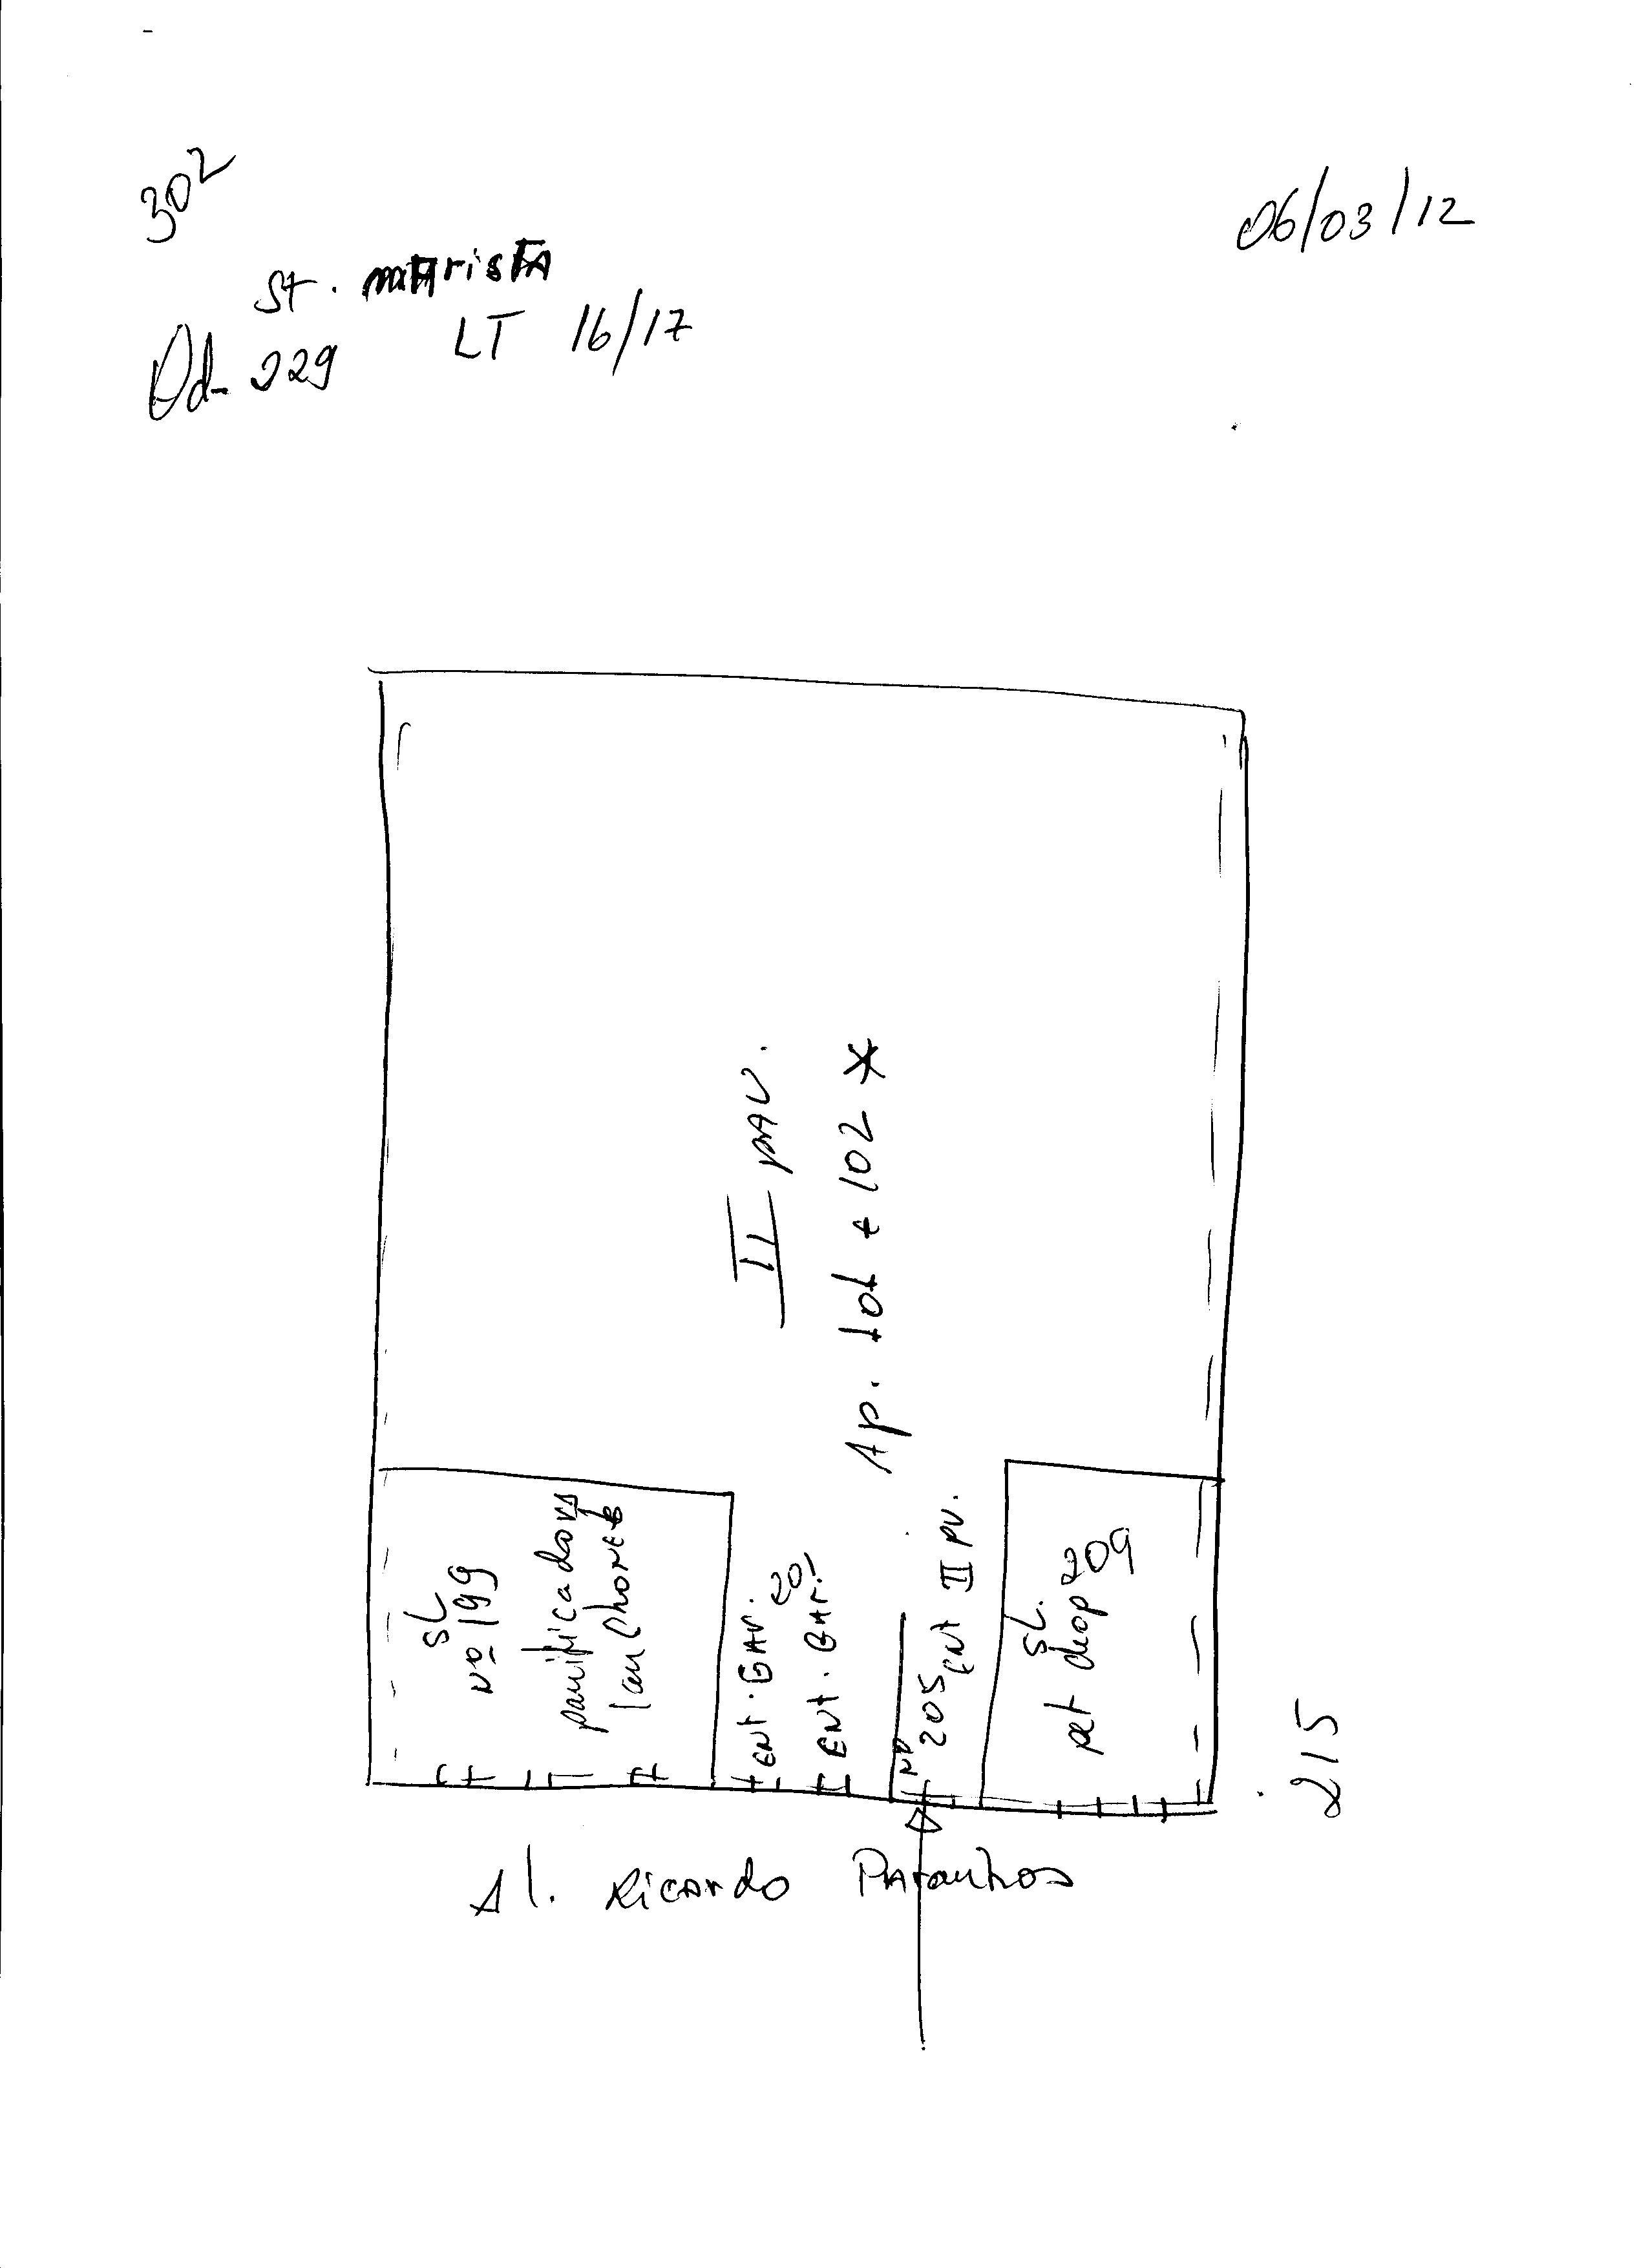 302
06/03/12
St. mArisTA
Qd- 229 LT 16/17
II pAV.
Ap. 101 + 102 *
SL
Nº 199
panificadora
ENT. GAr.
201
ENT. GAr.
Nº 205
ENT II PV.
SL.
pet shop 209
215
Al. Ricardo PArAnhos